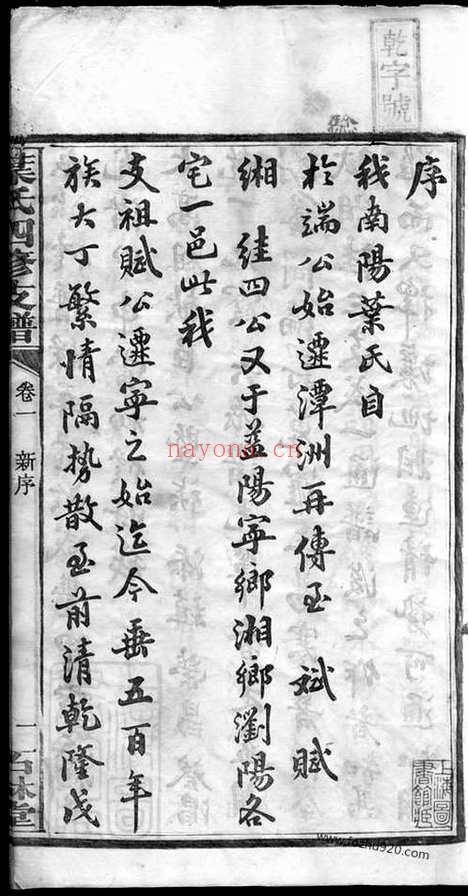 乾字號
序
我南陽葉氏自
於端公始遷潭洲再傳至 斌 賦
緗 絓四公又于益陽寧鄉湘鄉瀏陽各
宅一邑此我
支祖賦公遷寧之始迄今垂五百年
族大丁繁情隔勢散至前清乾隆戊
葉氏四修支譜
卷一 新序
一
石林堂
上海圖書館藏
nayona.cn
www.fozhu920.com